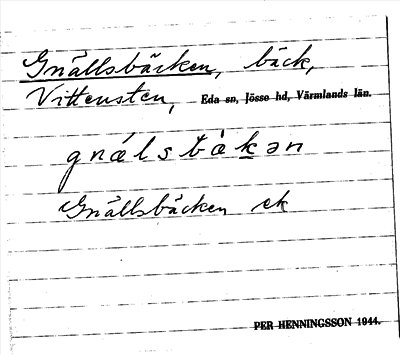 Gnällsbäcken, bäck,
Vittensten, Eda sn, Jösse hd, Värmlands län.
gnǽlsbàkən
Gnällsbäcken ek
PER HENNINGSSON 1944.